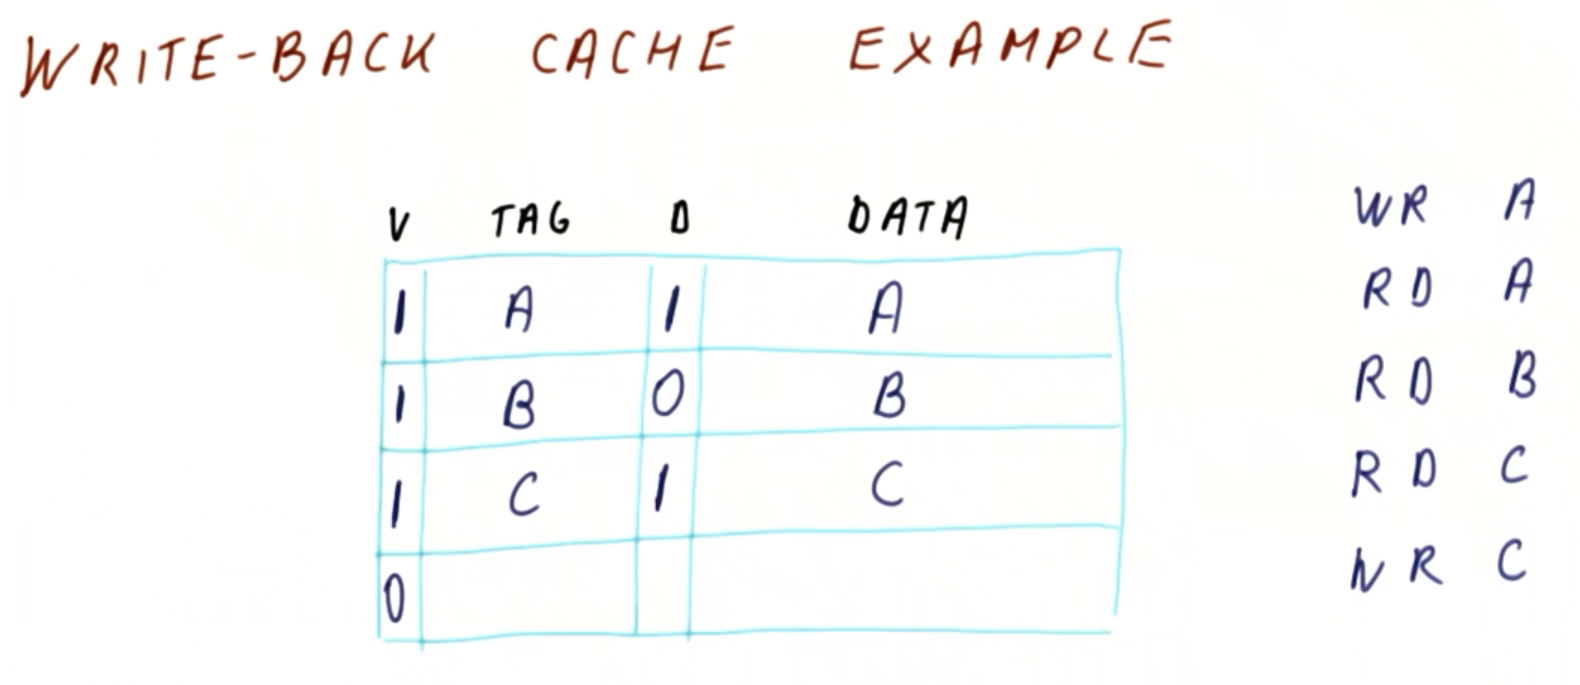 WRITE-BACK CACHE EXAMPLE
V TAG D DATA
1 A 1 A
1 B 0 B
1 C 1 C
0
WR A
RD A
RD B
RD C
WR C